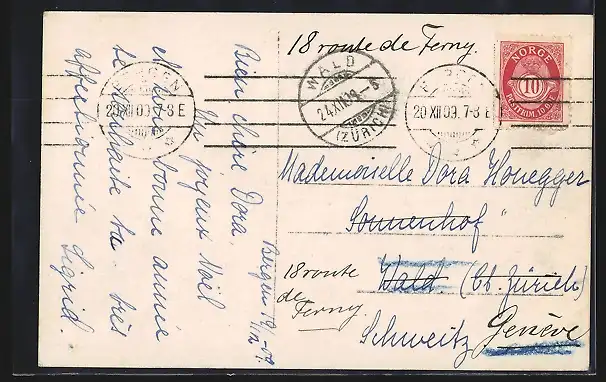 Bien chère Dora,
Un joyeux Noël
et une bonne année
te souhaite ta très
affectionnée Sigrid.
Bergen 19/12 -09.
18 route de Ferney.
WALD
24.XII.09.-8
(ZÜRICH)
BERGEN
20 XII 09. 7-8 E
BERGEN
20 XII 09. 7-8 E
NORGE
10
POSTFRIM. 10 ØRE
Mademoiselle Dora Honegger
Sonnenhof
Wald. (Ct. Zürich)
Schweitz
18 route
de
Ferney
Genève